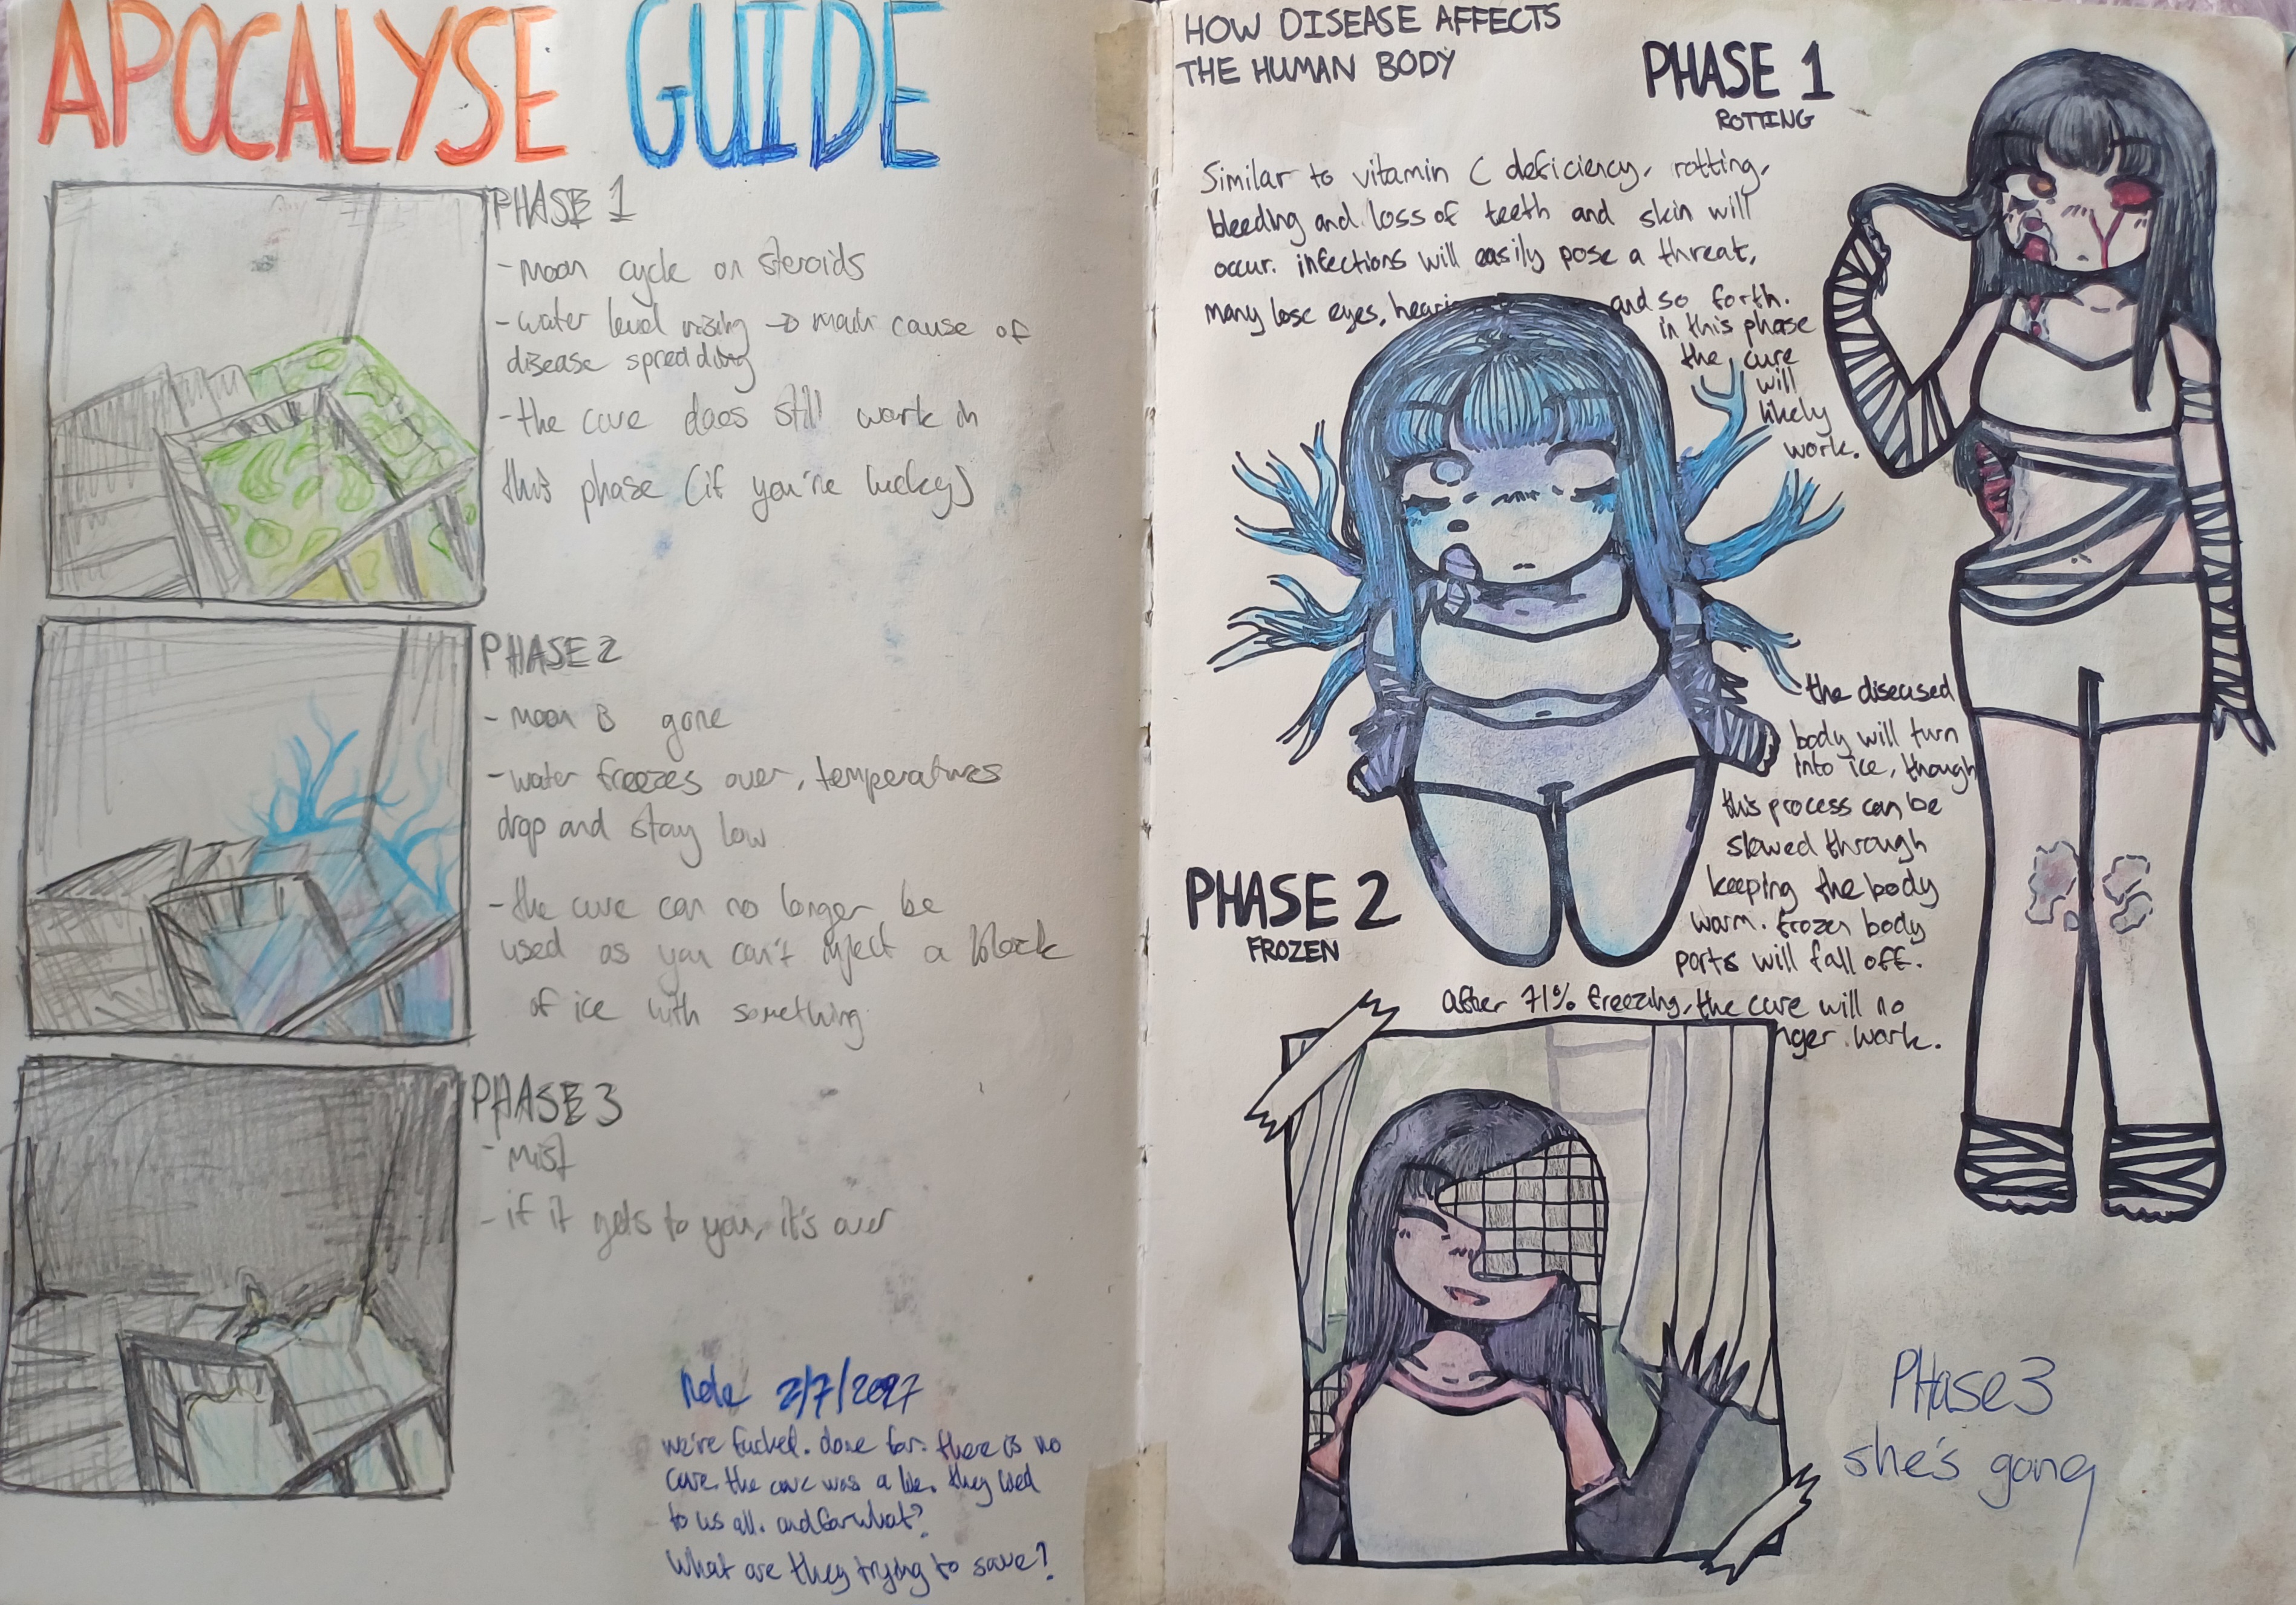 APOCALYSE GUIDE
PHASE 1
- moon cycle on steroids
- water level rising → main cause of
disease spredding
- the cure does still work in
this phase (if you're lucky)
PHASE 2
- moon is gone
- water freezes over, temperatures
drop and stay low
- the cure can no longer be
used as you can't inject a block
of ice with something
PHASE 3
- mist
- if it gets to you, it's over
Note 2/7/2027
we're fucked. done for. there is no
cure. the cure was a lie. they lied
to us all. and for what?
What are they trying to save?
HOW DISEASE AFFECTS
THE HUMAN BODY
PHASE 1
ROTTING
Similar to vitamin C deficiency, rotting,
bleeding and loss of teeth and skin will
occur. infections will easily pose a threat,
many lose eyes, and so forth.
in this phase
the cure
will
likely
work.
PHASE 2
FROZEN
the diseased
body will turn
into ice, though
this process can be
slowed through
keeping the body
warm. frozen body
parts will fall off.
after 71% freezing, the cure will no
nger work.
PHase 3
she's gone